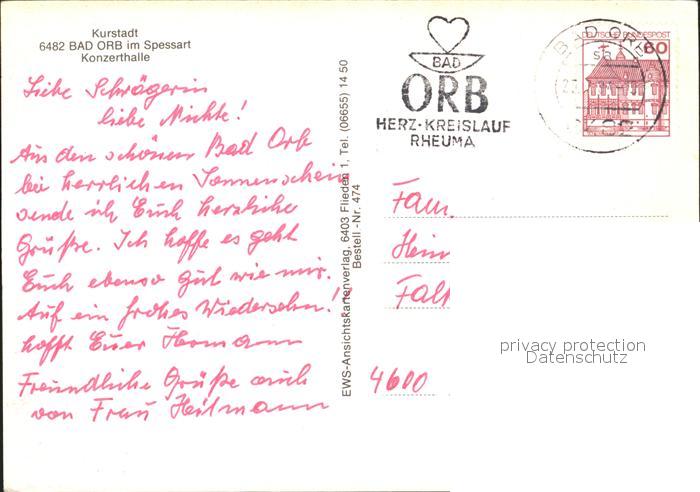 Kurstadt
6482 BAD ORB im Spessart
Konzerthalle
Liebe Schwägerin
liebe Nichte!
Aus den schönen Bad Orb
bei herrlichen Sonnenschein
sende ich Euch herzliche
Grüße. Ich hoffe es geht
Euch ebenso gut wie mir.
Auf ein frohes Wiedersehn!
hofft Euer Hermann
Freundliche Grüße auch
von Frau Heilmann
EWS-Ansichtskartenverlag, 6403 Flieden 1, Tel. (06655) 14 50
Bestell-Nr. 474
BAD
ORB
HERZ-KREISLAUF
RHEUMA
BAD ORB
DEUTSCHE BUNDESPOST
60
Fam.
Hein
Falt
4600
privacy protection
Datenschutz